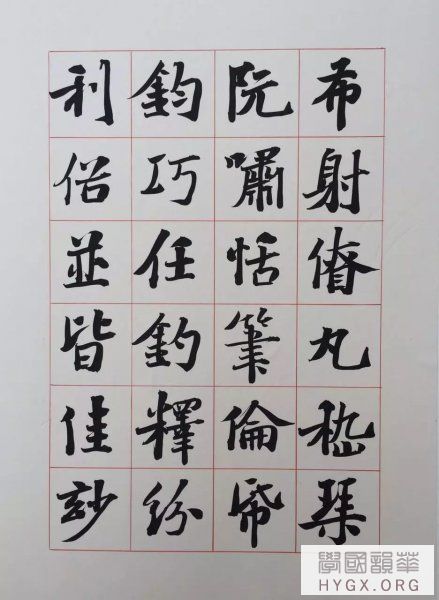 希射僚丸嵇琴
阮嘯恬筆倫帋
鈞巧任釣釋紛
利俗並皆佳玅
華韻國學
HYGX.ORG